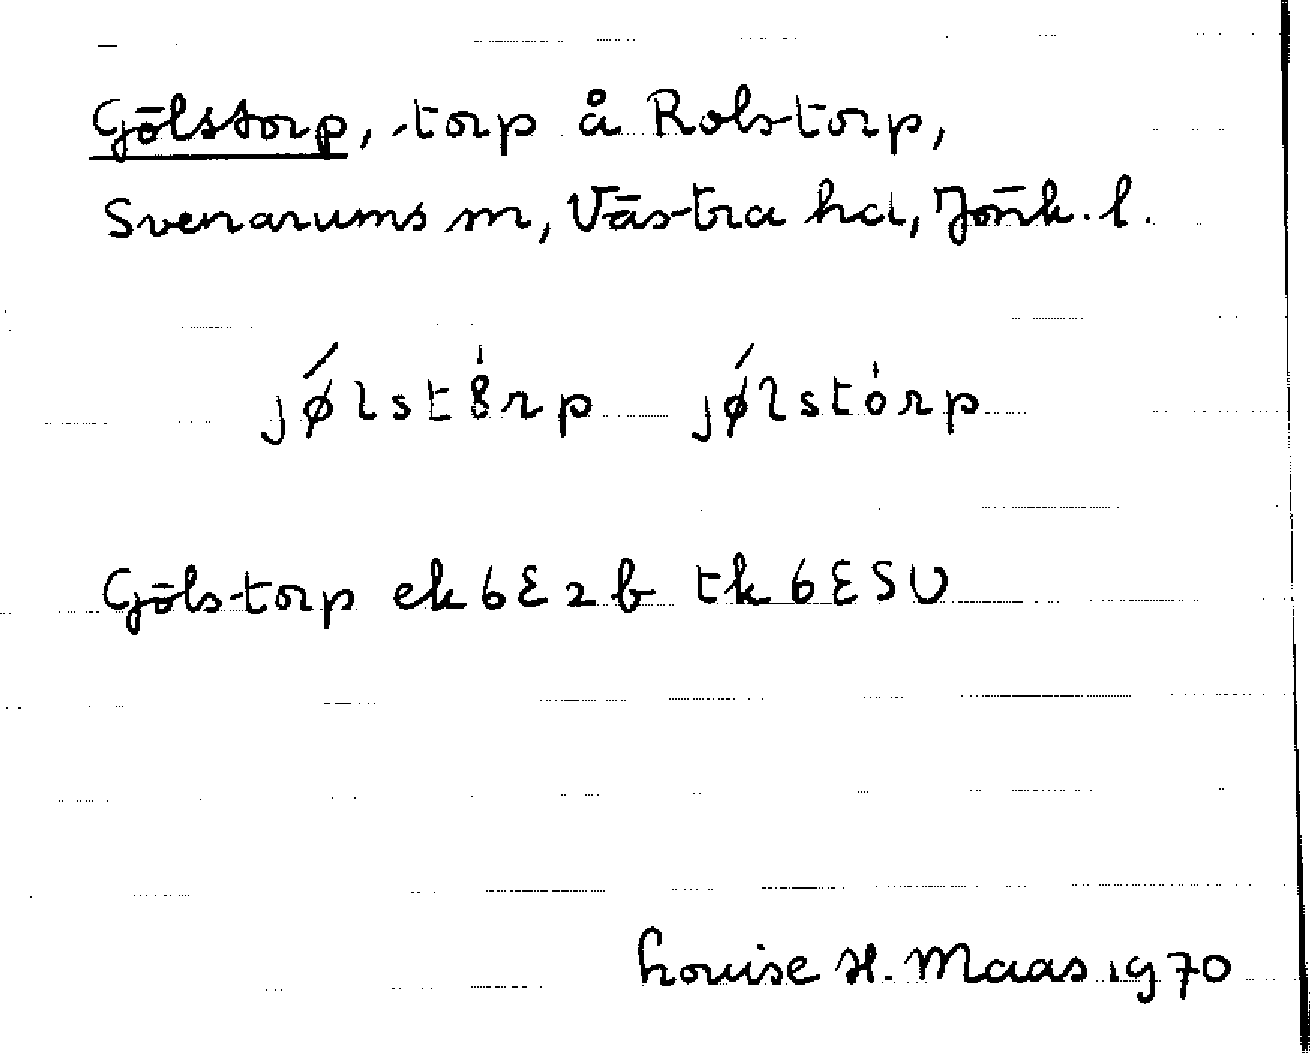 Gölstorp, torp å Rolstorp,
Svenarums sn, Västra hd, Jönk. l.
jǿlstȯ̀rp jǿlstȯrp
Gölstorp ek 6E2b tk 6ESV
Louise H. Maas 1970